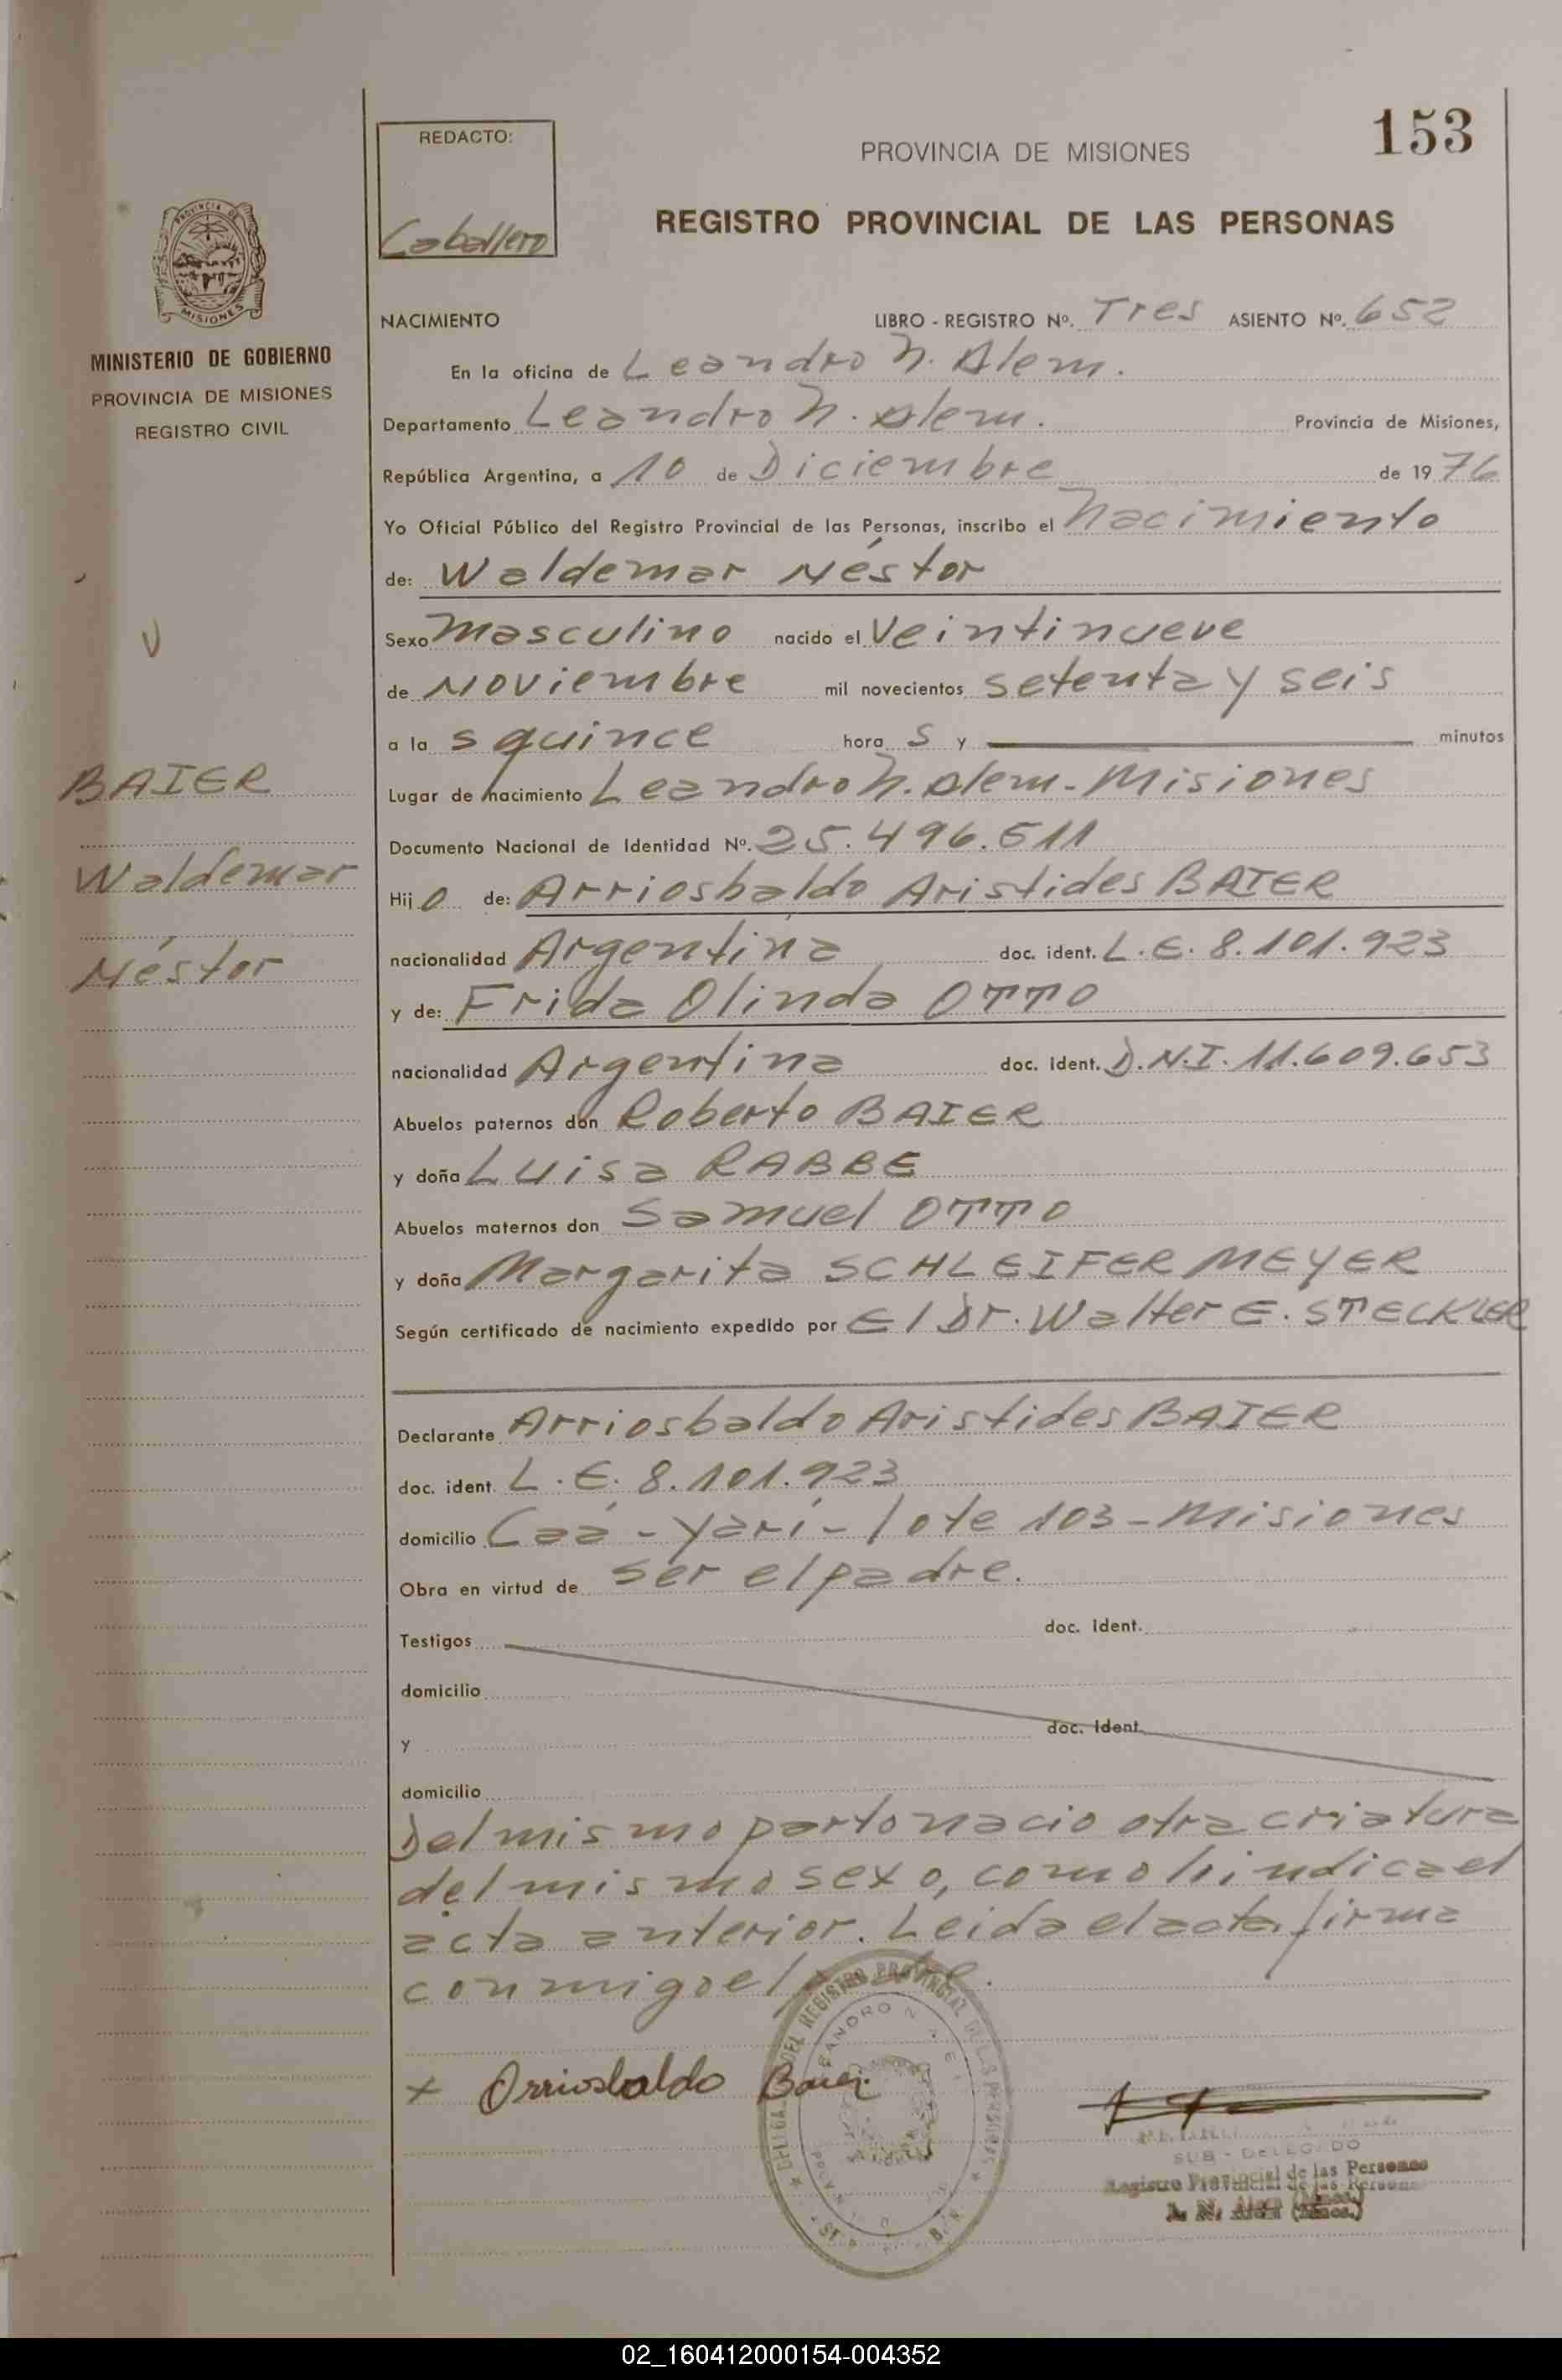 153
REDACTO:
Caballero
PROVINCIA DE MISIONES
REGISTRO PROVINCIAL DE LAS PERSONAS
PROVINCIA DE
MISIONES
MINISTERIO DE GOBIERNO
PROVINCIA DE MISIONES
REGISTRO CIVIL
NACIMIENTO LIBRO - REGISTRO Nº. Tres ASIENTO Nº. 652
En la oficina de Leandro N. Alem.
Departamento Leandro N. Alem. Provincia de Misiones,
República Argentina, a 10 de Diciembre de 1976
Yo Oficial Público del Registro Provincial de las Personas, inscribo el Nacimiento
de: Waldemar Néstor
Sexo Masculino nacido el Veintinueve
de Noviembre mil novecientos setenta y seis
a la s quince hora s y minutos
BAIER
Waldemar
Néstor
Lugar de nacimiento Leandro N. Alem - Misiones
Documento Nacional de Identidad Nº. 25.496.511
Hij o de: Arriosbaldo Aristides BAIER
nacionalidad Argentina doc. ident. L.E. 8.101.923
y de: Frida Olinda OTTO
nacionalidad Argentina doc. ident. D.N.I. 11.609.653
Abuelos paternos don Roberto BAIER
y doña Luisa RABBE
Abuelos maternos don Samuel OTTO
y doña Margarita SCHLEIFER MEYER
Según certificado de nacimiento expedido por El Dr. Walter E. STECKLER
Declarante Arriosbaldo Aristides BAIER
doc. ident. L.E. 8.101.923
domicilio Caá-Yarí-lote 103-Misiones
Obra en virtud de ser el padre.
Testigos doc. ident.
domicilio
y doc. ident.
domicilio
Del mismo parto nacio otra criatura
del mismo sexo, como lo indica el
acta anterior. Leida el acta firma
conmigo el padre.
x Orriosbaldo Baier
DEL REGISTRO PROVINCIAL DE LAS PERSONAS
SUB - DELEGADO
Registro Provincial de las Personas
L. N. Alem (Mnes.)
02_160412000154-004352